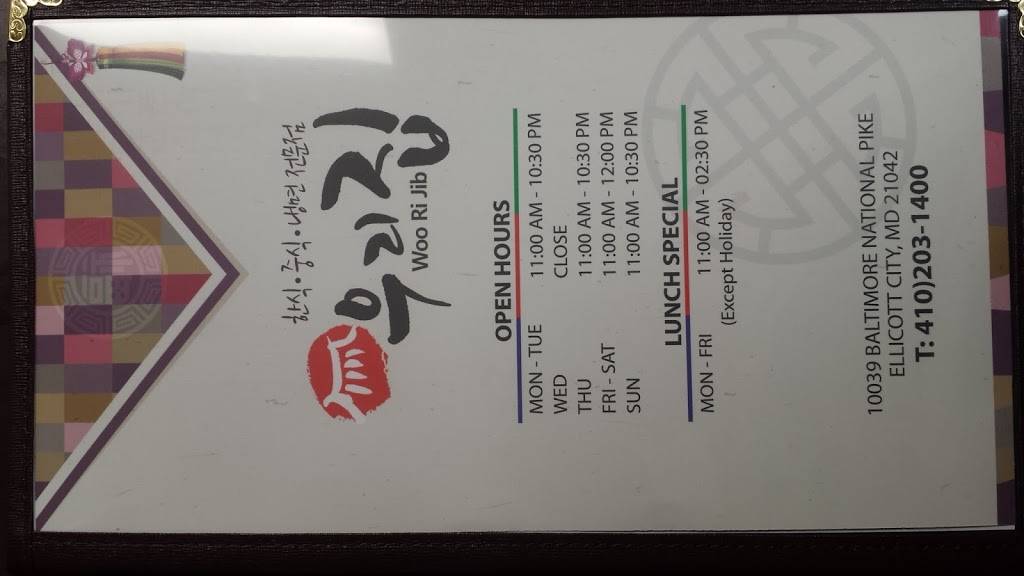 한식 • 중식 • 냉면 전문점
우리집
Woo Ri Jib
OPEN HOURS
MON - TUE 11:00 AM - 10:30 PM
WED CLOSE
THU 11:00 AM - 10:30 PM
FRI - SAT 11:00 AM - 12:00 PM
SUN 11:00 AM - 10:30 PM
LUNCH SPECIAL
MON - FRI 11:00 AM - 02:30 PM
(Except Holiday)
10039 BALTIMORE NATIONAL PIKE
ELLICOTT CITY, MD 21042
T: 410)203-1400